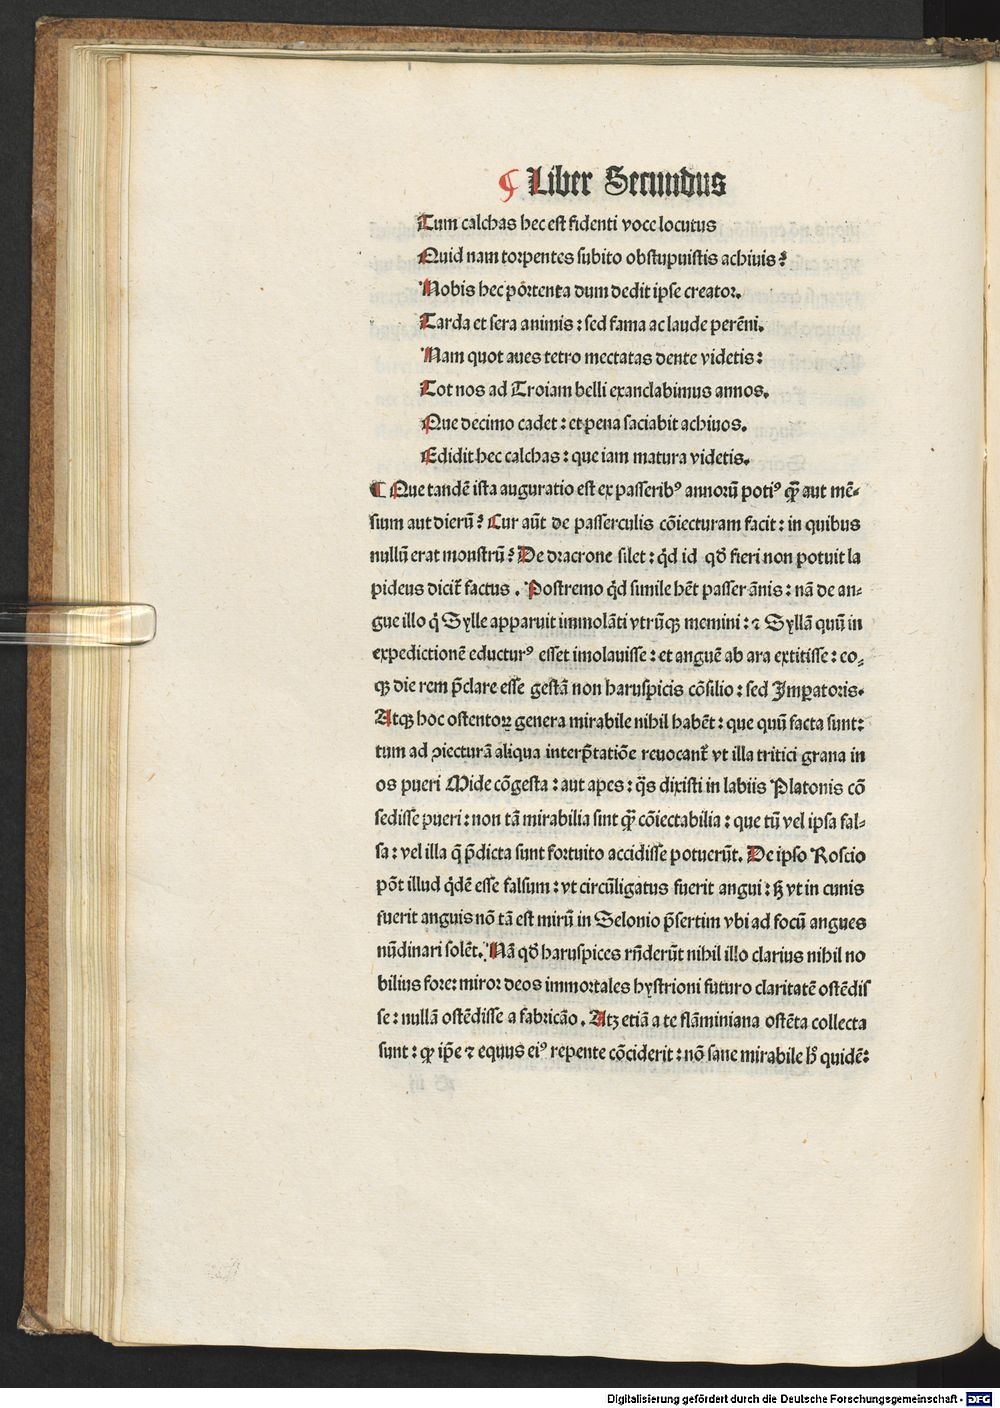 ¶ Liber Secundus
Tum calchas hec est fidenti voce locutus
Quid nam torpentes subito obstupuistis achiuis?
Nobis hec portenta dum dedit ipse creator.
Tarda et sera animis: sed fama ac laude perēni.
Nam quot aues tetro mectatas dente videtis:
Tot nos ad Troiam belli exanclabimus annos.
Que decimo cadet: et pena saciabit achiuos.
Edidit hec calchas: que iam matura videtis.
¶ Que tandē ista auguratio est ex passeribꝰ annorū potiꝰ qȝ̄ aut mē-
sium aut dierū? Cur aūt de passerculis cōiecturam facit: in quibus
nullū erat monstrū? De dracrone silet: qd̄ id qd̄ fieri non potuit la
pideus dicit̄ factus. Postremo qd̄ simile hēt passer ānis: nā de an-
gue illo q̄ Sylle apparuit immolāti vtrūqȝ memini: ⁊ Syllā quū in
expedictionē educturꝰ esset imolauisse: et anguē ab ara extitisse: eo-
qȝ die rem p̄clare esse gestā non haruspicis cōsilio: sed Imꝑatoris.
Atqȝ hoc ostentoꝝ genera mirabile nihil habēt: que quū facta sunt:
tum ad ꝯiecturā aliqua interp̄tatiōe reuocant̄ vt illa tritici grana in
os pueri Mide cōgesta: aut apes: q̄s dixisti in labiis Platonis cō
sedisse pueri: non tā mirabilia sint qȝ̄ cōiectabilia: que tn̄ vel ipsa fal-
sa: vel illa q̄ p̄dicta sunt fortuito accidisse potuerūt. De ipso Roscio
pōt illud qd̄ē esse falsum: vt circūligatus fuerit angui: sꝫ vt in cunis
fuerit anguis nō tā est mirū in Selonio p̄sertim vbi ad focū angues
nūdinari solēt. Nā qd̄ haruspices rn̄derūt nihil illo clarius nihil no
bilius fore: miror deos immortales hystrioni futuro claritatē ostēdis
se: nullā ostēdisse africāo. Atqȝ etiā a te flāminiana ostēta collecta
sunt: ꝙ ip̄e ⁊ equus eiꝰ repente cōciderit: nō sane mirabile h̄ quidē:
Digitalisierung gefördert durch die Deutsche Forschungsgemeinschaft - DFG